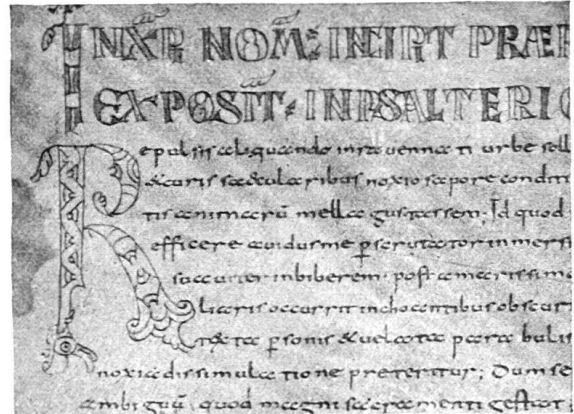 IN XPI NOM̅ INCIPIT PRAEF
EXPOSIT INPSALTERIO
Repulsis aliquando inrauennati urbe soll
&curis saecularibus noxio sapore conditi
tis animarū mella gustassem; Id quod
efficere auidusme ꝑscrutator inmersi
suauiter inbiberem post amarissima
liaris occurrit inchoantibus obscur
texta ꝑsonis &uelata parabolis
noxia dissimulatione preteritur; Dum se
ambiguū quod magni sacramenti gestat